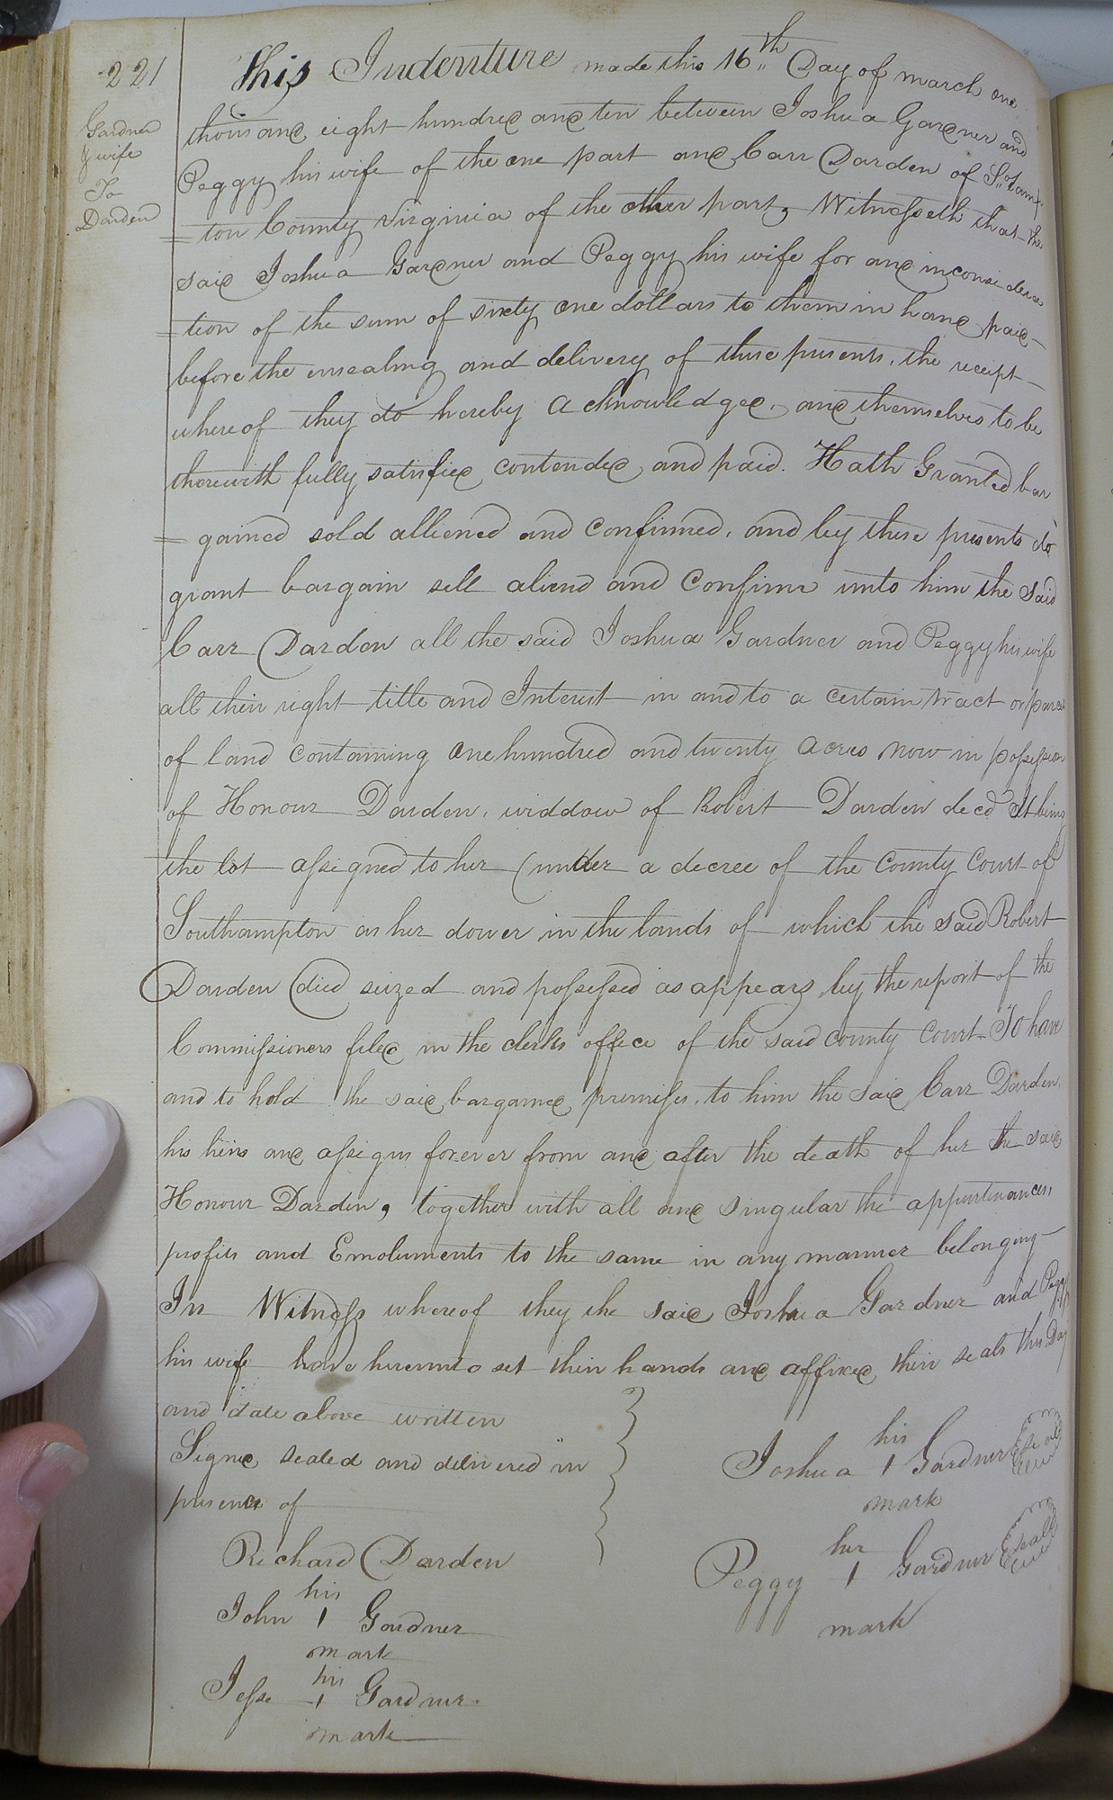 221
Gardner
& wife
To
Darden
This Indenture made this 16th Day of march one
thousand eight hundred and ten between Joshua Gardner and
Peggy his wife of the one part and Carr Darden of So.ham
=ton County Virginia of the other part, Witnesseth that the
said Joshua Gardner and Peggy his wife for and inconsidera
=tion of the sum of sixty one dollars to them in hand paid
before the ensealing and delivery of these presents, the receipt
whereof they do hereby acknowledged, and themselves to be
therewith fully satisfied contended and paid. Hath Granted bar
=gained sold alliened and confirmed, and by these presents do
grant bargain sell aliend and Confirm unto him the said
Carr Darden all the said Joshua Gardner and Peggy his wife
all their right title and Interest in and to a certain tract or parcel
of land containing one hundred and twenty acres now in possession
of Honour Darden, widdow of Robert Darden decd It being
the lot assigned to her (under a decree of the County Court of
Southampton as her dower in the lands of which the said Robert
Darden died seized and possessed as appears by the report of the
Commissioners filed in the clerks office of the said county court. To have
and to hold the said bargained premises, to him the said Carr Darden,
his heirs and assigns forever from and after the death of her the said
Honour Darden, together with all and singular the appurtenances,
profits and Emoluments to the same in any manner belonging
In Witness whereof they the said Joshua Gardner and Peggy
his wife have hereunto set their hands and affixed their seals this Day
and date above written
Signed sealed and delivered in
presence of
Joshua his mark Gardner Seal
Peggy her mark Gardner Seal
Richard Darden
John his mark Gardner
Jesse his mark Gardner